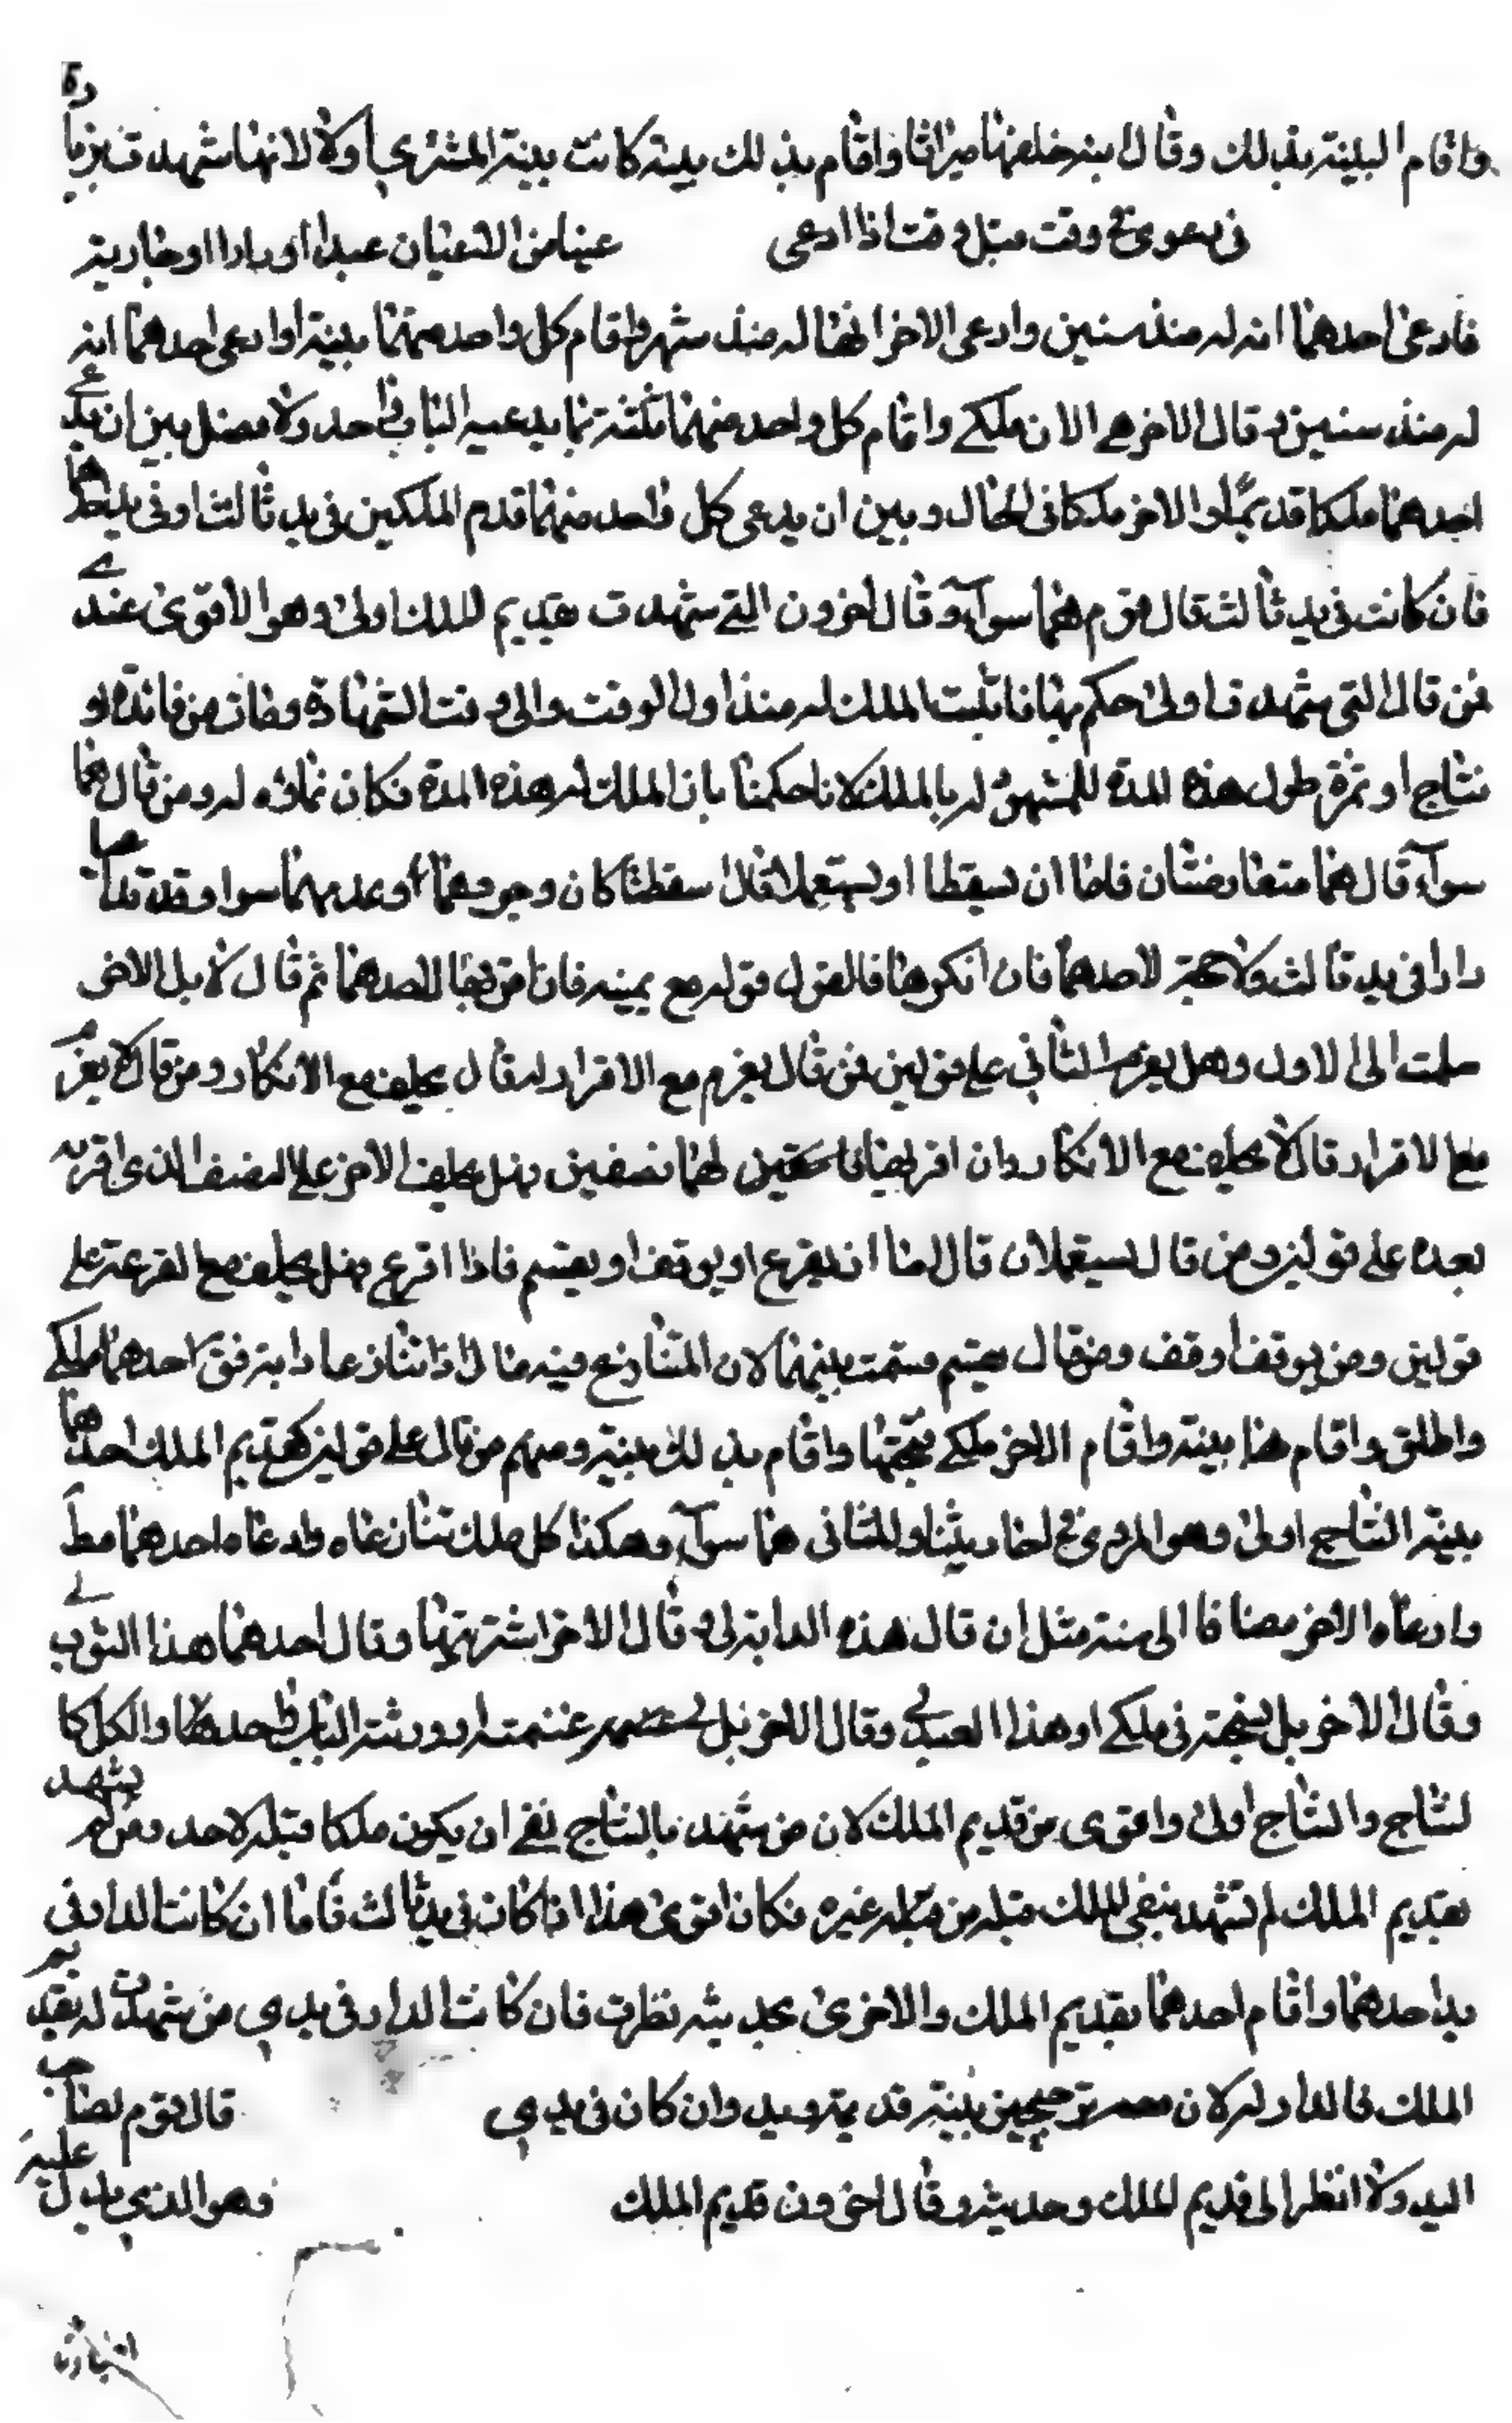 واقام البينة بذلك وقال بنه خلفها ميراثا واقام بذلك بينة كانت بينة المشتري اولا لانها شهدت بزيا دة
فى دعوى فى وقت قبل وقت اذا ادعى عينا من الاعيان عبدا او دارا او خارية
فادعى احدهما انه له منذ سنين وادعى الاخر انها له منذ شهر واقام كل واحد منهما بينة او ادعى احدهما انه
له منذ سنين وقال الاخر هى الان ملكى واقام كل واحد منهما بينة بما يدعيه الباب واحد ولا فصل بين ان يدعى
احدهما ملكا قديما والاخر ملكا فى الحال وبين ان يدعى كل واحد منهما قدم الملكين فى يد ثالث او فى يد احدهما
فان كانت فى يد ثالث قال قوم هما سوآء وقال اخرون التى شهدت بقديم الملك اولى وهو الاقوى عندى
فمن قال التى شهدت اولى حكم بها فاثبت الملك له منذ اول الوقت والى وقت الشهادة وما كان من فائدة او
نتاج او ثمرة طول هذه المدة للمشهود له بالملك لانا حكمنا بان الملك له هذه المدة فكان نماؤه له ومن قال هما
سوآء قال هما متعارضتان فاما ان يسقطا او يستعملا فان سقطتا كان وجودهما وعدمهما سوا وقد تداعيا
دارا فى يد ثالث ولا حجة لاحدهما فان انكرهما فالقول قوله مع يمينه فان اقر بها لاحدهما ثم قال لا بل الاخر
سلمت الى الاول وهل يغرم الثانى على قولين فمن قال يغرم مع الاقرار له قال يحلف مع الانكار ومن قال لا يغرم
مع الاقرار قال لا يحلف مع الانكار وان اقر بها لهما نصفين وهل يحلف الاخر على النصف الذى اقر به
بعده على قولين ومن قال يستعملان قال اما ان يقرع او يوقف او يقسم فاذا اقرع فهل يحلف مع القرعة على
قولين ومن يوقف اوقف ومن قال يقسم قسمت بينهما لان المتنازع فيه مال اذا تنازعا دابة فقال احدهما ملكى
واطلق واقام هذا بينة واقام الاخر ملكى نتجتها واقام بذلك بينة ومنهم من قال على قولين كقديم الملك احدهما
بينة النتاج اولى وهو المروى فى اخاديثنا والثانى هما سوآء وهكذا كل ملك تنازعاه وادعاه احدهما مطلقا
وادعاه الاخر مضافا الى سنة مثل ان قال هذه الدابة لى وقال الاخر اشتريتها وقال احدهما هذا الثوب لى
وقال الاخر بل نسجته فى ملكى او هذا العبد لى وقال الاخر بل غنمته او ورثته الباب واحد والكل كا
لنتاج والنتاج اولى واقوى من قديم الملك لان من شهد بالنتاج نفى ان يكون ملكا قبله لاحد ومن لم يشهد
بقديم الملك لم تشهد بنفى الملك قبله من قبله غيره فكان اقوى هذا اذا كان فى يد ثالث فاما ان كانت الدار فى
يد احدهما واقام احدهما بقديم الملك والاخرى بحديثه نظرت فان كانت الدار فى يدي من شهدت له بقديم
الملك فالدار له لان معه ترجيحين بينة قديمة ويد وان كان فى يدي قال قوم لصاحب
اليد ولا انظر الى قديم الملك وحديثه وقال اخرون قديم الملك وهو الذي يدل عليه